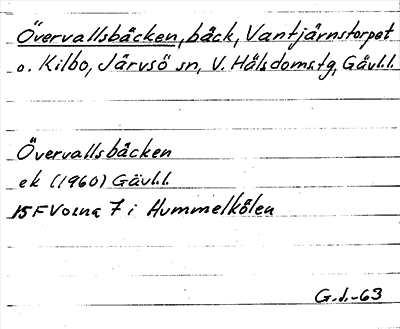 Övervallsbäcken, bäck, Vantjärnstorpet
o. Kilbo, Järvsö sn, V. Hälsdomstg, Gävl.l.
Övervallsbäcken
ek (1960) Gävl.l.
15F Voxna 7 i Hummelkölen
G.J.-63